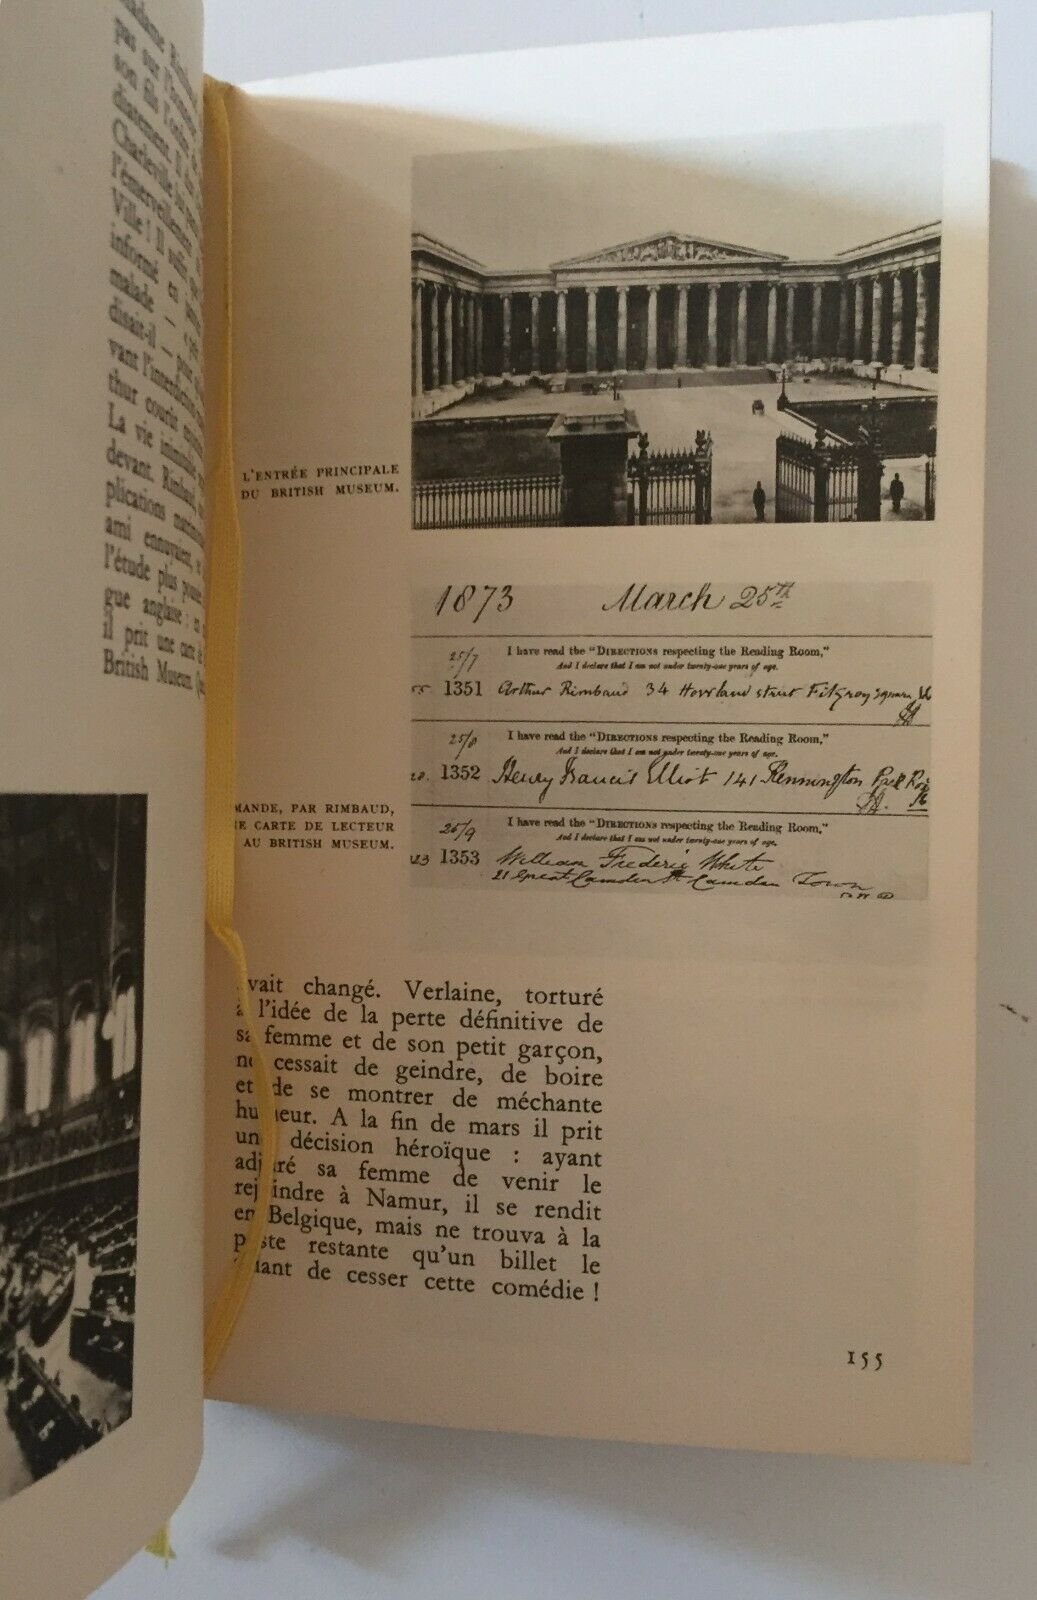 madame Rimbaud,
pas sur l'honneur
son fils
diatement. Il
Charleville lui
l'émerveillement
Ville ! Il suffit,
informé en
malade — « 
disait-il — pour
vant l'interdiction
thur courut
La vie inimitable,
devant. Rimbaud,
plications
ami ennuyaient,
l'étude plus poussée
gue anglaise : en
il prit une carte de
British Museum
L'ENTRÉE PRINCIPALE
DU BRITISH MUSEUM.
1873 March 25th
25/7 I have read the "DIRECTIONS respecting the Reading Room,"
And I declare that I am not under twenty-one years of age.
1351 Arthur Rimbaud 34 Howland street Fitzroy Square, W
25/8 I have read the "DIRECTIONS respecting the Reading Room,"
And I declare that I am not under twenty-one years of age.
1352 Henry Francis Elliot 141 Kennington Park Road
25/9 I have read the "DIRECTIONS respecting the Reading Room,"
And I declare that I am not under twenty-one years of age.
1353 William Frederic White
21 Great Camden St Camden Town
MANDE, PAR RIMBAUD,
E CARTE DE LECTEUR
AU BRITISH MUSEUM.
avait changé. Verlaine, torturé
à l'idée de la perte définitive de
sa femme et de son petit garçon,
ne cessait de geindre, de boire
et de se montrer de méchante
humeur. A la fin de mars il prit
une décision héroïque : ayant
adjuré sa femme de venir le
rejoindre à Namur, il se rendit
en Belgique, mais ne trouva à la
poste restante qu'un billet le
priant de cesser cette comédie !
155